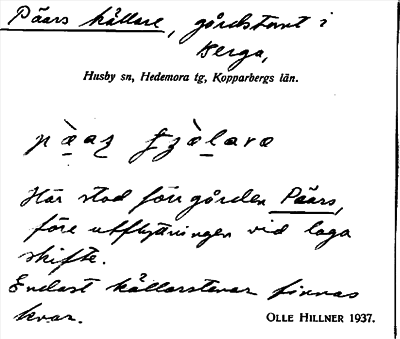 Päars källare, gårdstomt i
Berga,
Husby sn, Hedemora tg, Kopparbergs län.
Här stod förr gården Päars,
före utflyttningen vid laga
skifte.
Endast källarstenar finnas
kvar. OLLE HILLNER 1937.